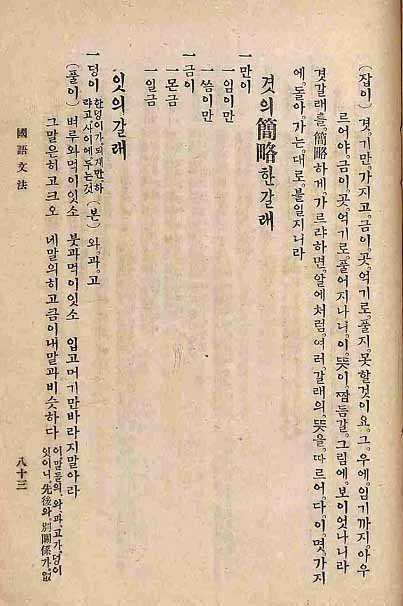 (잡이) 겻, 기만가지고, 금이, 곳, 억기로, 풀지, 못할것이요, 그, 우에, 임기까지, 아우
르어야, 금이, 곳, 억기로, 풀어지나니, 이, 뜻이, 짬듬갈, 그림에, 보이엇나니라
겻갈래를, 簡略하게가르랴하면, 알에처럼, 여러, 갈래의, 뜻을, 따르어, 다, 이, 몃, 가지
에, 돌아, 가는, 대로, 불일지니라
겻의簡略한갈래
一만이
一임이만
一씀이만
一금이
一몬금
一일금
잇의갈래
一덩이 한덩이가되게만하랴고사이에두는것 (본) 와, 과, 고
(풀이) 벼루와먹이잇소 붓과먹이잇소 입고머기만바라지말아라
그말은히고크오 네말의히고금이내말과비슷하다 이말들의, 와, 과, 고가덩이
잇이니, 先後와, 別關係가, 없
國語文法 八十三